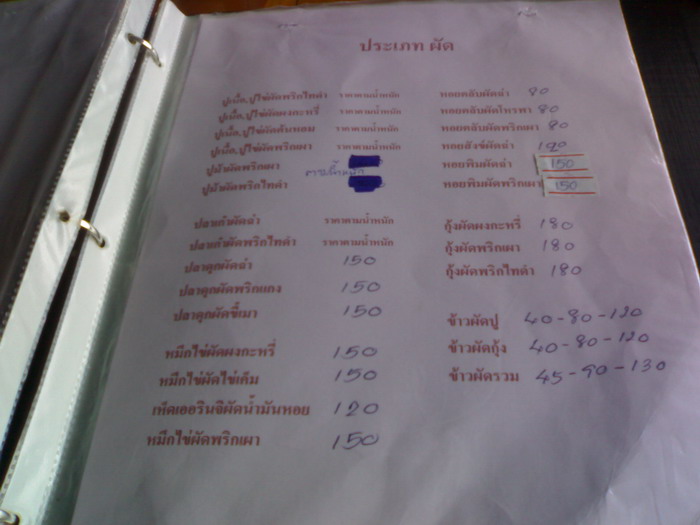 ประเภท ผัด
ปูเนื้อ,ปูไข่ผัดพริกไทดำ ราคาตามน้ำหนัก
ปูเนื้อ,ปูไข่ผัดผงกะหรี่ ราคาตามน้ำหนัก
ปูเนื้อ,ปูไข่ผัดต้นหอม ราคาตามน้ำหนัก
ปูเนื้อ,ปูไข่ผัดพริกเผา ราคาตามน้ำหนัก
ปูม้าผัดพริกเผา
ตามน้ำหนัก
ปูม้าผัดพริกไทดำ
ปลาเก๋าผัดฉ่า ราคาตามน้ำหนัก
ปลาเก๋าผัดพริกไทดำ ราคาตามน้ำหนัก
ปลาดุกผัดฉ่า 150
ปลาดุกผัดพริกแกง 150
ปลาดุกผัดขี้เมา 150
หมึกไข่ผัดผงกะหรี่ 150
หมึกไข่ผัดไข่เค็ม 150
เห็ดเออรินจิผัดน้ำมันหอย 120
หมึกไข่ผัดพริกเผา 150
หอยตลับผัดฉ่า 80
หอยตลับผัดโหรพา 80
หอยตลับผัดพริกเผา 80
หอยสังข์ผัดฉ่า 120
หอยพิมผัดฉ่า 150
หอยพิมผัดพริกเผา 150
กุ้งผัดผงกะหรี่ 180
กุ้งผัดพริกเผา 180
กุ้งผัดพริกไทดำ 180
ข้าวผัดปู 40-80-120
ข้าวผัดกุ้ง 40-80-120
ข้าวผัดรวม 45-90-130